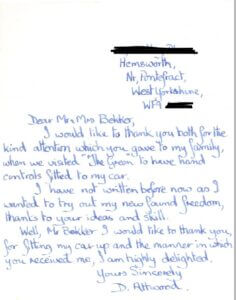 Hemsworth,
Nr, Pontefract,
West Yorkshire,
WF9
Dear Mr & Mrs Bekker,
I would like to thank you both for the
kind attention which you gave to my family,
when we visited "The Green" to have hand
controls fitted to my car.
I have not written before now as I
wanted to try out my new found freedom,
thanks to your ideas and skill.
Well, Mr Bekker I would like to thank you,
for fitting my car up and the manner in which
you received me, I am highly delighted.
Yours Sincerely
D. Attwood.